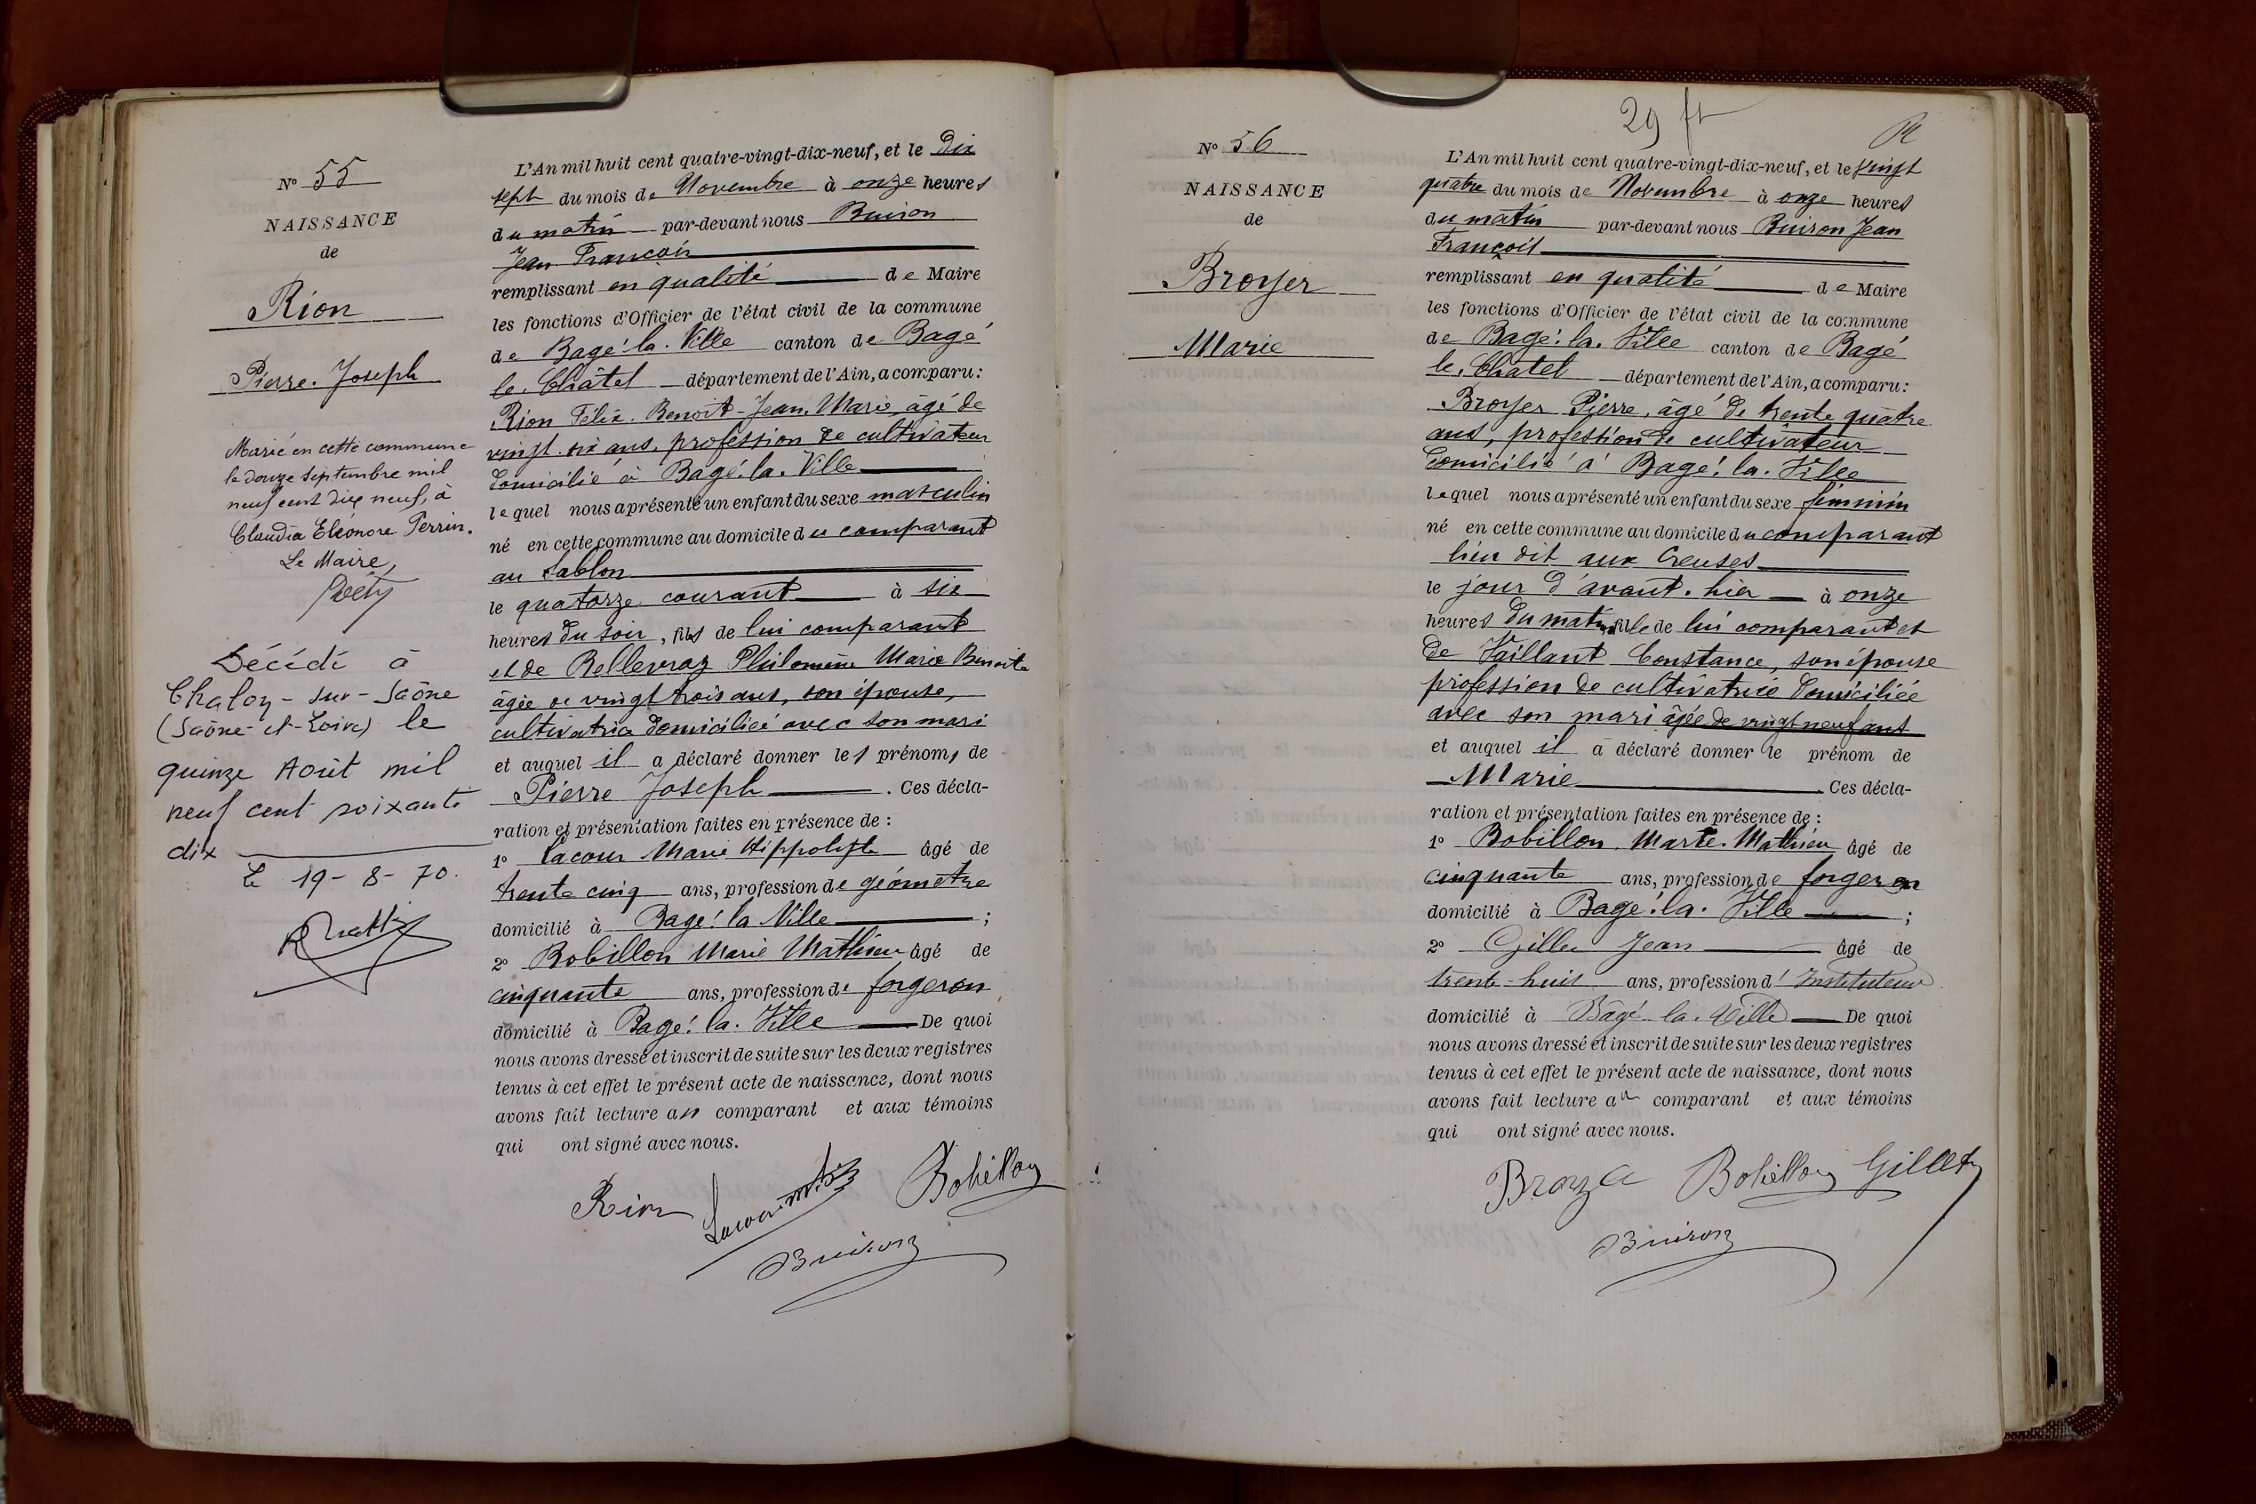 N° 55
NAISSANCE
de
Rion
Pierre. Joseph
Marié en cette commune
le douze septembre mil
neuf cent dix neuf, à
Claudia Eléonore Perrin.
Le Maire,
Décédé à
Chalon-sur-Saône
(Saône-et-Loire) le
quinze Août mil
neuf cent soixante
dix
Le 19-8-70.
L'An mil huit cent quatre-vingt-dix-neuf, et le Dix
sept du mois de Novembre à onze heures
du matin par-devant nous Buiron
Jean François
remplissant en qualité de Maire
les fonctions d'Officier de l'état civil de la commune
de Bagé-la-Ville canton de Bagé
le. Châtel département de l'Ain, a comparu :
Rion Félix. Benoit-Jean. Marie, âgé de
vingt. six ans, profession de cultivateur
domicilié à Bagé. la. Ville
lequel nous a présenté un enfant du sexe masculin
né en cette commune au domicile du comparant
au Sablon
le quatorze courant à six
heures du soir, fils de lui comparant
et de Bellevraz Philomène Marie Benoite
âgée de vingt trois ans, son épouse,
cultivatrice domiciliée avec son mari
et auquel il a déclaré donner les prénoms de
Pierre Joseph . Ces décla-
ration et présentation faites en présence de :
1° Lacour Marie Hippolyte âgé de
trente cinq ans, profession de géomètre
domicilié à Bagé. la Ville ;
2° Bobillon Marie Mathieu âgé de
cinquante ans, profession de forgeron
domicilié à Bagé. la. Ville De quoi
nous avons dressé et inscrit de suite sur les deux registres
tenus à cet effet le présent acte de naissance, dont nous
avons fait lecture au comparant et aux témoins
qui ont signé avec nous.
Rion Lacour Bobillon
Buiron
29 ft
N° 56
NAISSANCE
de
Broyer
Marie
L'An mil huit cent quatre-vingt-dix-neuf, et le vingt
quatre du mois de Novembre à onze heures
du matin par-devant nous Buiron Jean
François
remplissant en qualité de Maire
les fonctions d'Officier de l'état civil de la commune
de Bagé. la. Ville canton de Bagé
le. Chatel département de l'Ain, a comparu :
Broyer Pierre, âgé de trente quatre
ans, profession de cultivateur
domicilié à Bagé. la. Ville
lequel nous a présenté un enfant du sexe féminin
né en cette commune au domicile du comparant
lieu dit aux Creuses
le jour d'avant. hier à onze
heures du matin, fille de lui comparant et
de Vaillant Constance, son épouse
profession de cultivatrice domiciliée
avec son mari âgée de vingt neuf ans
et auquel il a déclaré donner le prénom de
Marie . Ces décla-
ration et présentation faites en présence de :
1° Bobillon. Marie. Mathieu âgé de
cinquante ans, profession de forgeron
domicilié à Bagé. la. Ville ;
2° Gillet Jean âgé de
trente-huit ans, profession d'Instituteur
domicilié à Bagé la. Ville De quoi
nous avons dressé et inscrit de suite sur les deux registres
tenus à cet effet le présent acte de naissance, dont nous
avons fait lecture au comparant et aux témoins
qui ont signé avec nous.
Broyer Bobillon Gillet
Buiron